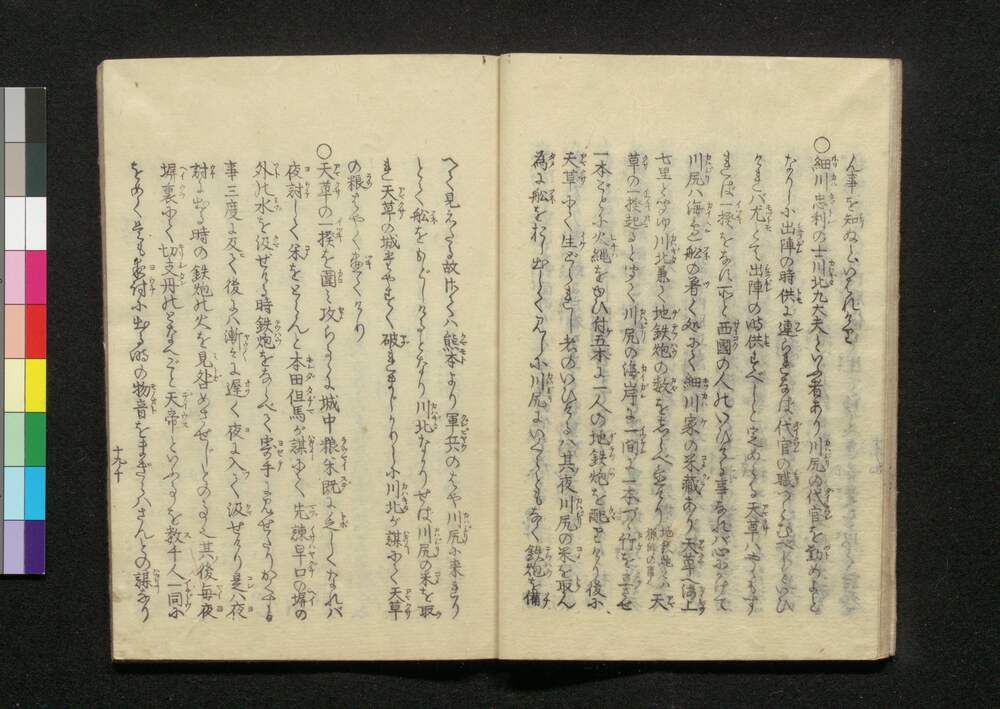 ん事を知ぬといはれけり
○細川忠利の士川北九大夫といふ者あり川尻の代官を勤めよと
なりしに出陣の時供に連らまじきは代官の職つとむべしといひ
ければ尤にて出陣の時供すべしと定めらる天草にやゝもす
れば一揆をなす所と西國の人のいひける事なれば心にかけて
川尻は海邊船の着く処にて細川家の米藏あり天草へ海上
七里と 川北兼て地鉄炮の数をしらべ置けり 地鉄炮とは猟師の事
草の一揆起ると聞て川尻の海岸に一間に一本づゝ竹を立させ
一本ごとに火縄を ひ付五本に一人の地鉄炮を配りけり後に
天草にて生どられし者のいひけるは其夜川尻の米を取ん
為に船をおし出して見しに川尻にいくらともなく鉄炮を備
へて見えたる故さては熊本より軍兵のはや川尻に来れり
とて船をもどしけるとなり川北なかりせば川尻の米を取
れ天草の城たやすく破れまじかりしに川北が謀にて天草
の粮はやく尽てけり
○天草の一揆を圍て攻らるゝに城中粮米既に乏しくなれば
夜討して米をとらんと本田但馬が謀にて先諫早口の塀の
外の水を汲ぜける時鉄炮をなしべく寄手に見せたりかくする
事三度に及びて後には漸々に遅く夜に入て汲せけり是は夜
討に出る時の鉄炮の火を見咎めさせじとのことなり其後毎夜
塀裏にて切支丹のとなへごと天帝といふ を数千人一同に
をめく是も夜討に出る時の物音をまぎらはさんとの謀なり
十九ノ十